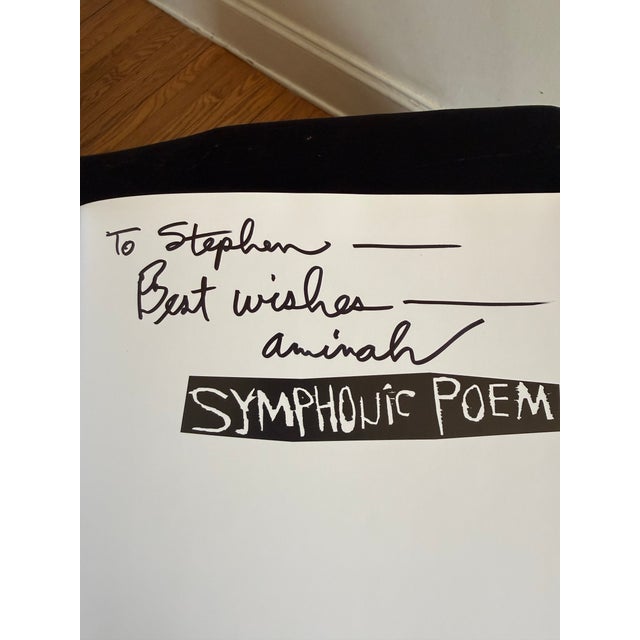 To Stephen —
Best wishes —
aminah
SYMPHONIC POEM